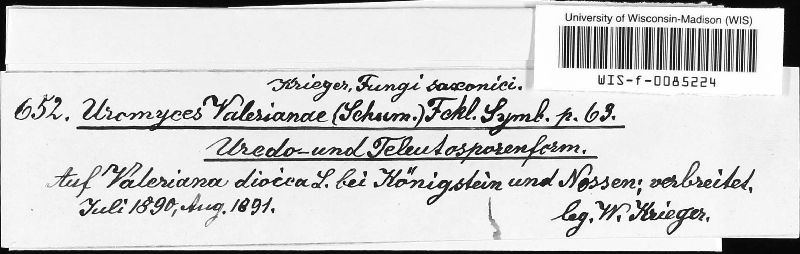 University of Wisconsin-Madison (WIS)
WIS-f-0085224
Krieger, Fungi saxonici.
652. Uromyces Valerianae (Schum.) Fckl. Symb. p. 63.
Uredo- und Teleutosporenform.
Auf Valeriana dioica L. bei Königstein und Nossen; verbreitet.
Juli 1890, Aug. 1891.
leg. W. Krieger.